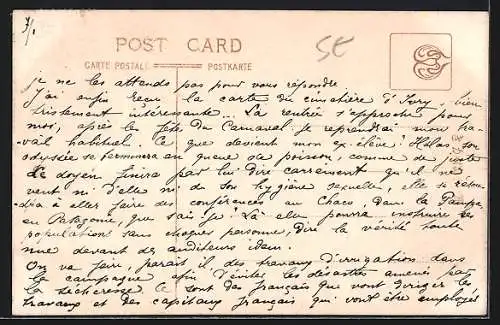 7/1
POST CARD
5E
CARTE POSTALE POSTKARTE
je ne les attends pas pour vous répondre
J'ai enfin reçu la carte du cimetière d'Ivry, bien
tristement intéressante... La rentrée s'approche pour
moi, après les fêtes du Carnaval je reprendrai mon tra-
vail habituel. Ce que devient mon ex-élève! Hélas son
odyssée se terminera en queue de poisson, comme de juste
Le doyen finira par lui dire carrément qu'il ne
veut ni d'elle ni de son hygiène sexuelle, elle se
à aller faire des conférences au Chaco, dans la Pampa,
en Patagonie, que sais-je! Là elle pourra instruire les
populations sans choquer personne, dire la vérité toute
nue devant des auditeurs idem.
On va faire, parait il, des travaux d'irrigation dans
la campagne afin d'éviter les désastres amenés par
la sécheresse. Ce sont des français que vont diriger les
travaux et des capitaux français qui vont être employés